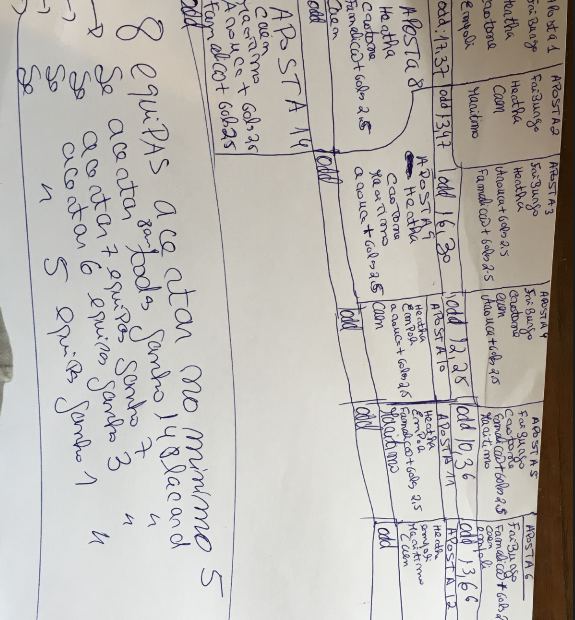 APOSTA 1
FriBurgo
Heatha
Caotone
Empoli
odd: 17,37
APOSTA 2
FriBurgo
Heatha
Caen
Maritimo
odd 13,47
APOSTA 3
FriBurgo
Heatha
Arouca + Golos 2.5
Famalicão + Golos 2.5
odd 16,30
APOSTA 4
FriBurgo
Caotone
Caen
Arouca + Golos 2,5
odd 12,25
APOSTA 5
FriBurgo
Caotone
Famalicão + Golos 2,5
Maritimo
odd 10,36
APOSTA 6
FriBurgo
Famalicão + Golos 2
empoli
caen
odd 13,66
APOSTA 8
Heatha
Caotone
Famalicão + Golos 2.5
Caen
odd
APOSTA 9
Heatha
Caotone
Maritimo
arouca + Golos 2.5
odd
APOSTA 10
Heatha
Empoli
arouca + Golos 2,5
Caen
odd
APOSTA 11
Heatha
Empoli
Famalicão + Golos 2,5
Maritimo
odd
APOSTA 12
Heatha
empoli
Maritimo
Caen
odd
APOSTA 14
Caen
Maritimo
Arouca + Golos 2.5
Famalicão + Golos 2.5
odd
8 equipas acertar no minimo 5
-> Se acertar todas ganho 14
-> Se acertar 7 equipas ganho 7 "
-> Se acertar 6 equipas ganho 3 "
-> Se " 5 equipas ganho 1 "